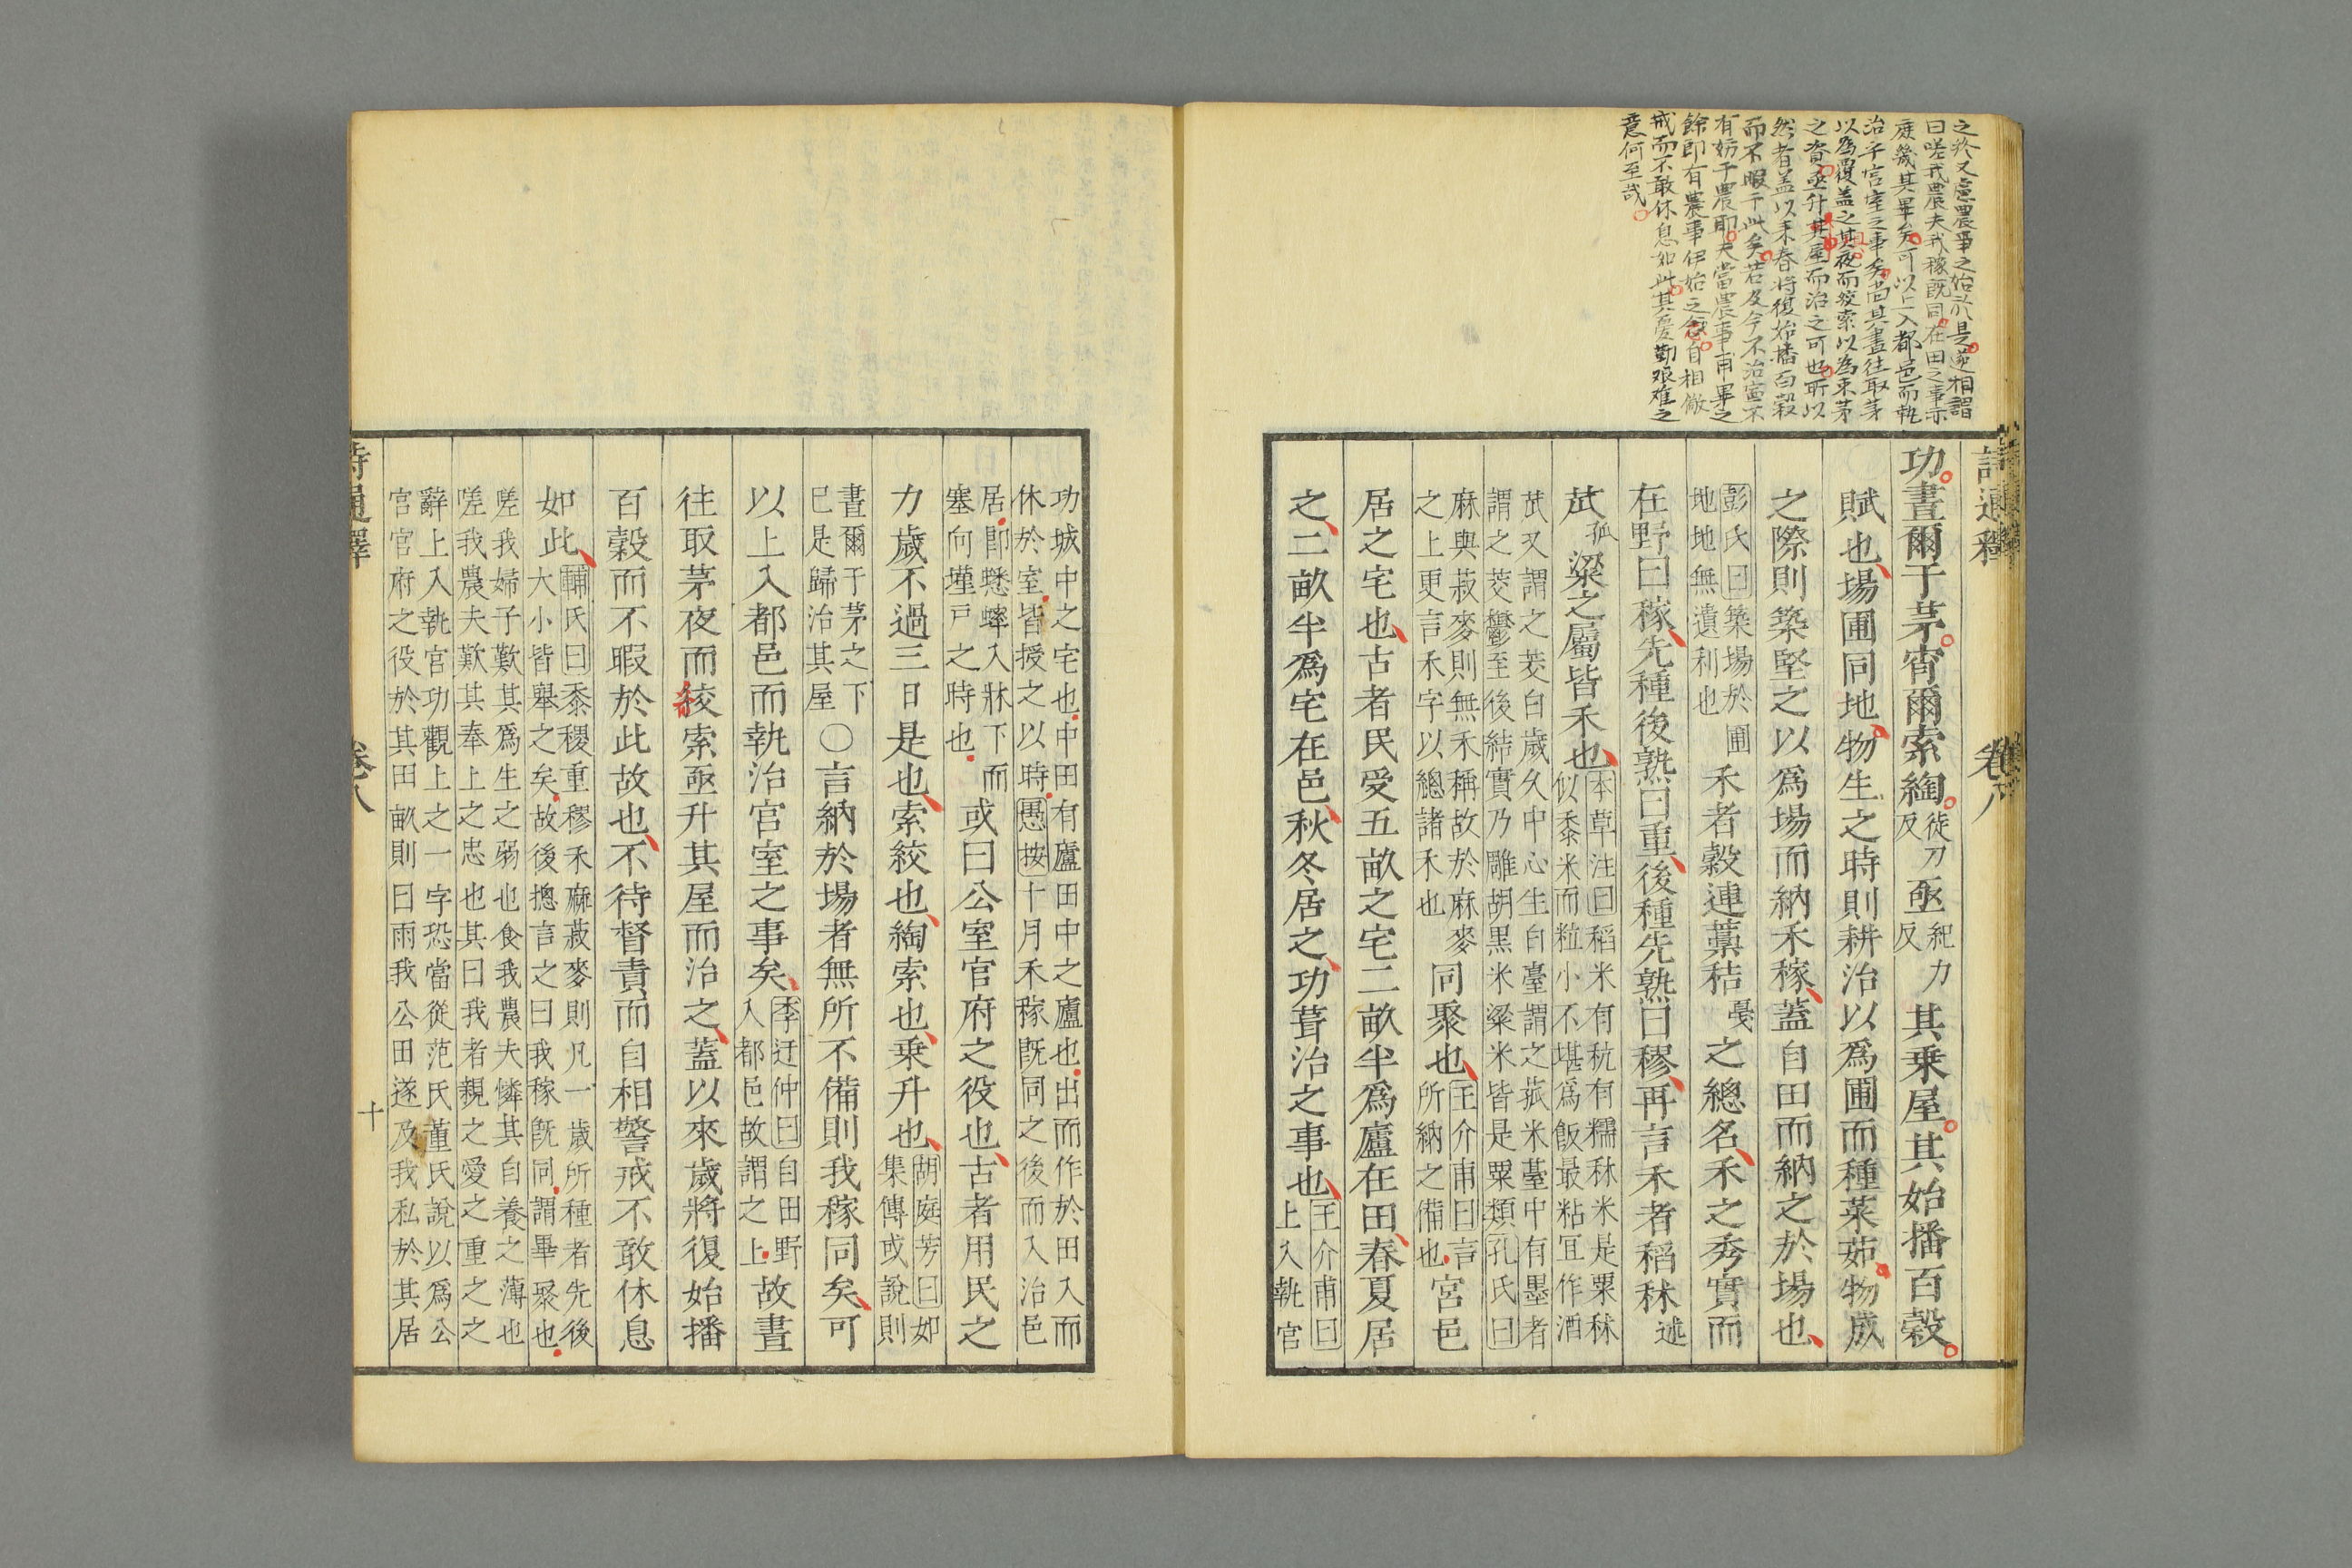 之於又慮農事之始於是遂相謂
曰嗟我農夫我稼既同在田之事亦
庶幾其畢矣可以上入都邑而執
治乎宮室之事矣其晝往取茅
以爲覆蓋之其夜而絞索以為束茅
之資亟升其屋而治之可也所以
然者蓋以來春將復始播百穀
而不暇于此矣若及今不治寧不
有妨于農耶夫當農事甫畢之
餘即有農事伊始之念自相儆
戒而不敢休息如此其憂勤艱难之
意何至哉
詩通釋 卷八
功晝爾于茅宵爾索綯徒刀反亟紀力反其乗屋其始播百穀
賦也場圃同地物生之時則耕治以爲圃而種菜茹物成
之際則築堅之以爲場而納禾稼蓋自田而納之於場也
彭氏曰築場於圃地地無遺利也禾者穀連藁秸戞之總名禾之秀實而
在野曰稼先種後熟曰重後種先熟曰穋再言禾者稻秫述
苽孤粱之屬皆禾也本草注曰稻米有秔有糯秫米是粟秫似黍米而粒小不堪爲飯最粘冝作酒
苽又謂之茭白歲久中心生白臺謂之菰米薹中有墨者謂之茭鬱至後結實乃雕胡黒米粱米皆是粟類孔氏曰
麻與菽麥則無禾稱故於麻麥之上更言禾字以總諸禾也同聚也王介甫曰言所納之備也宮邑
居之宅也古者民受五畝之宅二畝半爲廬在田春夏居
之二畝半爲宅在邑秋冬居之功葺治之事也王介甫曰上入執宮
功城中之宅也中田有廬田中之廬也出而作於田入而休於室皆授之以時愚按十月禾稼既同之後而入治邑
居即蟋蟀入牀下而塞向墐戸之時也或曰公室官府之役也古者用民之
力歲不過三日是也索絞也綯索也乗升也胡庭芳曰如集傳或說則
晝爾于茅之下已是歸治其屋○言納於場者無所不備則我稼同矣可
以上入都邑而執治宮室之事矣李迂仲曰自田野入都邑故謂之上故晝
往取茅夜而絞索亟升其屋而治之蓋以來歲將復始播
百穀而不暇於此故也不待督責而自相警戒不敢休息
如此輔氏曰黍稷重穋禾麻菽麥則凡一歲所種者先後大小皆舉之矣故後摠言之曰我稼既同謂畢聚也
嗟我婦子歎其爲生之弱也食我農夫憐其自養之薄也嗟我農夫歎其奉上之忠也其曰我者親之愛之重之之
辭上入執宮功觀上之一字恐當從范氏董氏說以爲公宮官府之役於其田畝則曰雨我公田遂及我私於其居
詩通釋 卷八 十